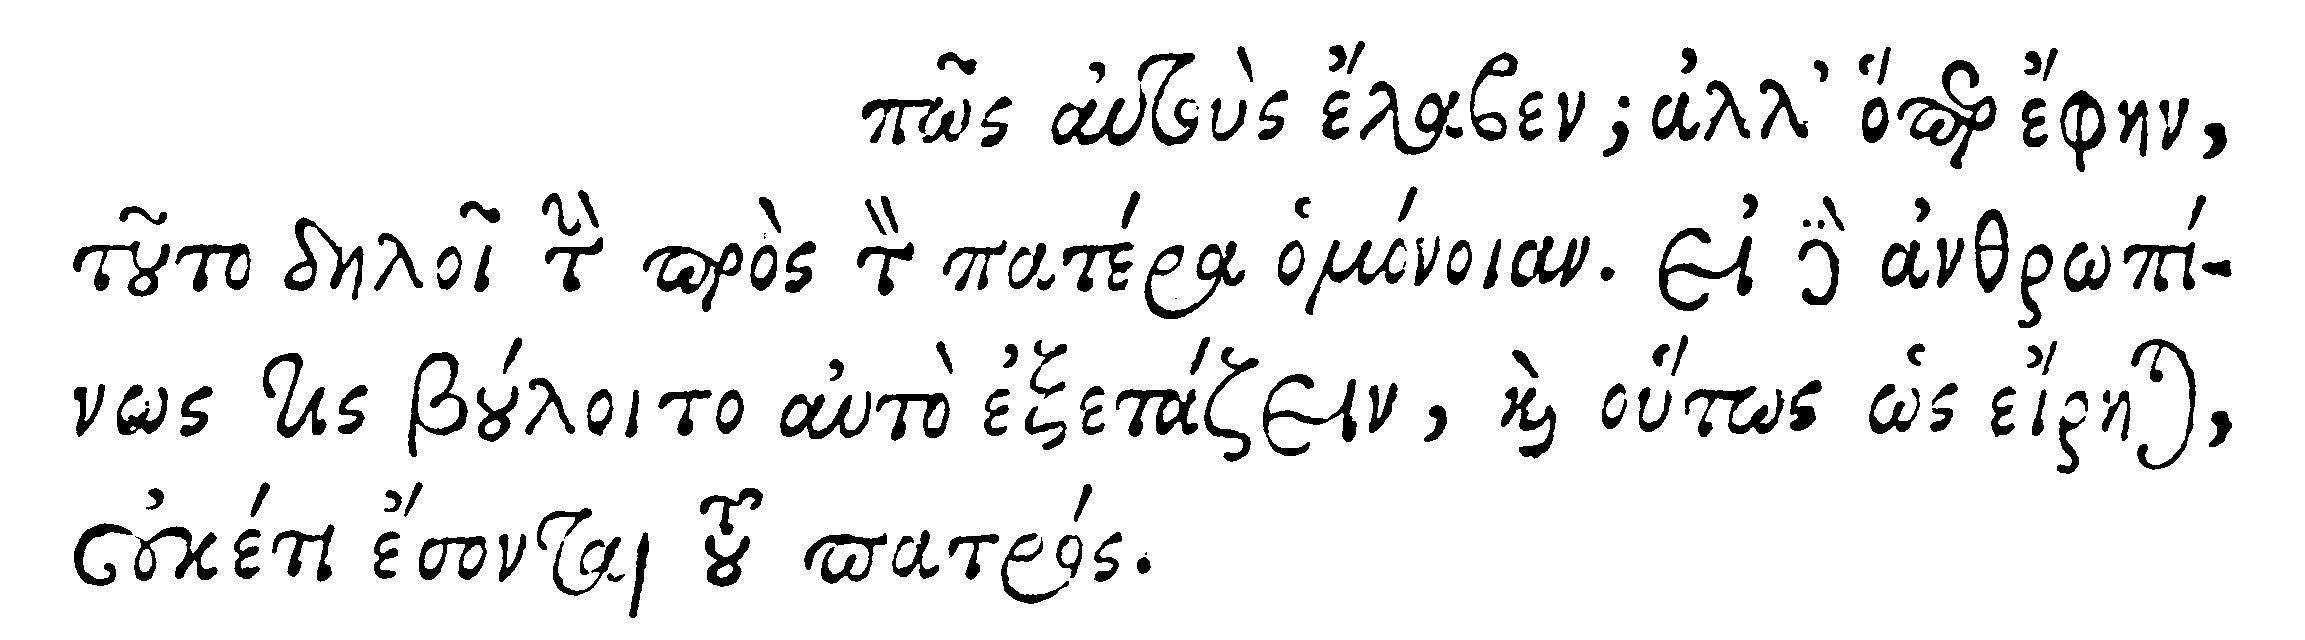 πῶς αὐτοὺς ἔλαβεν; ἀλλ' ὅπερ ἔφην,
τοῦτο δηλοῖ τὴν πρὸς τὸν πατέρα ὁμόνοιαν. εἰ δὲ ἀνθρωπί-
νως τις βούλοιτο αὐτὸ ἐξετάζειν, καὶ οὕτως ὡς εἴρηται,
οὐκέτι ἔσονται τοῦ πατρός.